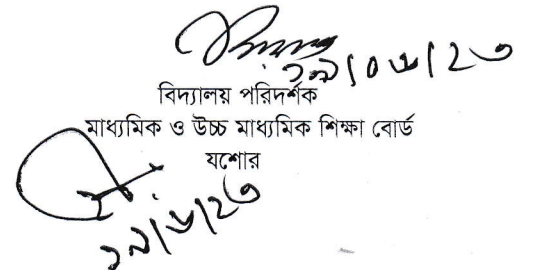 ২৯/০৬/২৩
বিদ্যালয় পরিদর্শক
মাধ্যমিক ও উচ্চ মাধ্যমিক শিক্ষা বোর্ড
যশোর
২৯/৬/২৩